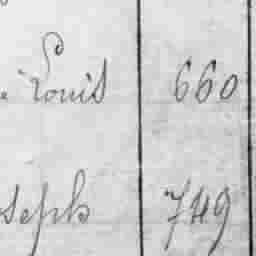 Louis 660
seph 749